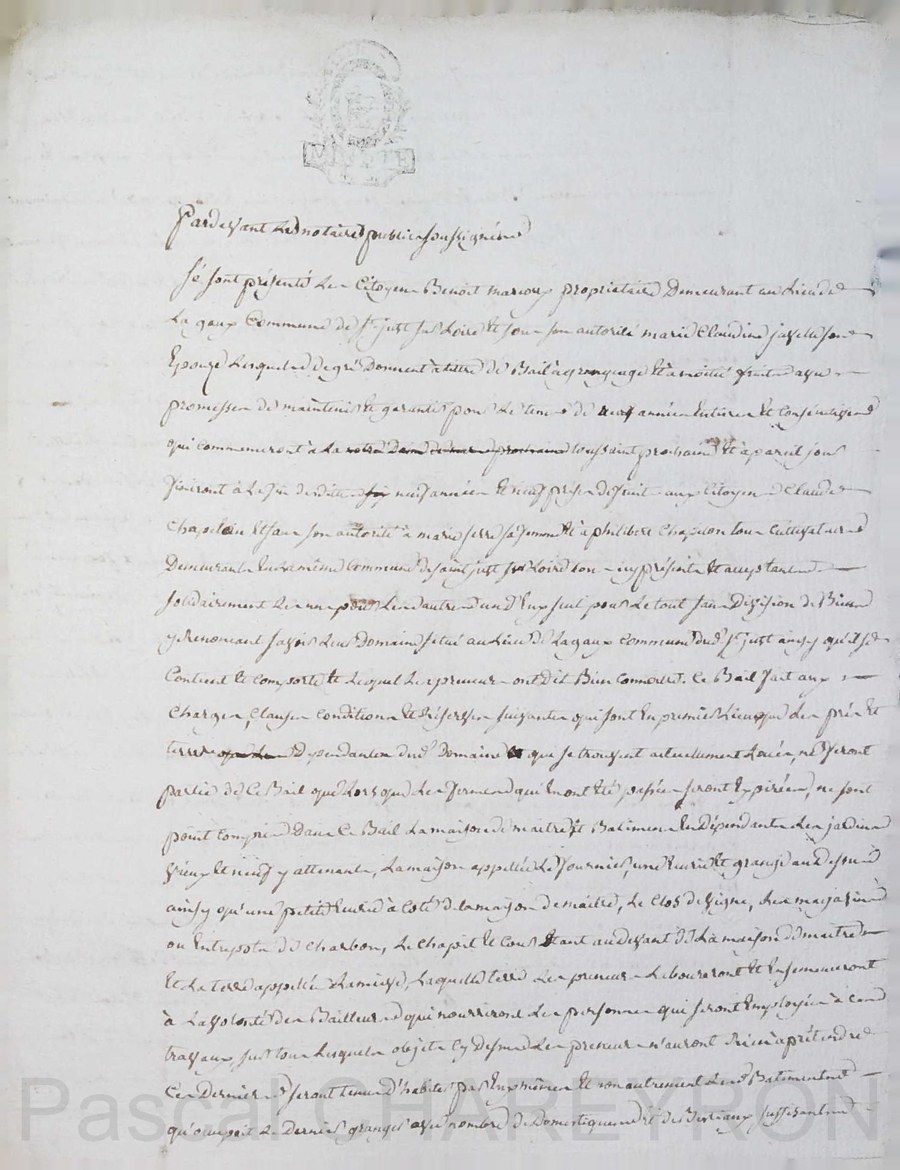 Pardevant les notaires publics soussignés
Se sont présenté le Citoyen Benoît marcoux propriétaire Demeurant au lieu de
La gaux Commune de St just sur Loire et sous son autorité marie Claudine
Epouze Lesquels de gré Donnent à titre de Bail à grangeage et à moitié fruit avec
promesse de maintenir et garantir pour le tems de neuf années entieres et consécutives
qui commenceront à la toussaint prochaine et à pareil jour
finiront à la fin desdittes neuf années et neuf prises de fruit aux Citoyens Claude
Chapelon et sous son autorité à marie serre sa femme et à philibert Chapelon tous Cultivateurs
Demeurants en la même Commune de saint just sur Loire tous icy présents et acceptants
solidairement les uns pour les autres un d'eux seul pour le tout sans Division de Biens
y Renoncant savoir leur Domaine situé au lieu de Lagaux Commune dud. St just ainsy qu'il se
Contient et comporte et lequel les preneurs ont dit Bien Connoitre. Ce Bail fait aux
Charges, Clauses Conditions et réserves suivantes qui sont en premier lieu que les prés et
terres Dépendantes dud. Domaine qui se trouvent actuellement Loués, ne feront
partie de Ce Bail que lorsque les fermes qui en ont été passées seront expirées, ne sont
point compris Dans ce Bail la maison de maitre et Batimens en Dépendants les jardins
vieux et neuf y attenants, la maison appellée le fournier, une Ecurie et grange au dessus
ainsy qu'une petite Ecurie à Coté de la maison de maitre, le Clos de vigne, les magasins
ou Entrepots de Charbon, le chapit et Cour Etant au devant de la maison de maitre
et la terre appellée, laquelle terre les preneurs Laboureront et Ensemenceront
à la volonté des Bailleurs qui nourriront les personnes qui seront Employées à ces
travaux, sur tous lesquels objets cy dessus les preneurs n'auront rien à prétendre
Ces Derniers seront tenus d'habiter par Eux mêmes et non autrement les Batiments
qu'occupoit le Dernier granger avec nombre de Domestiques et de Bestiaux suffisants
Pascal CHAREYRON